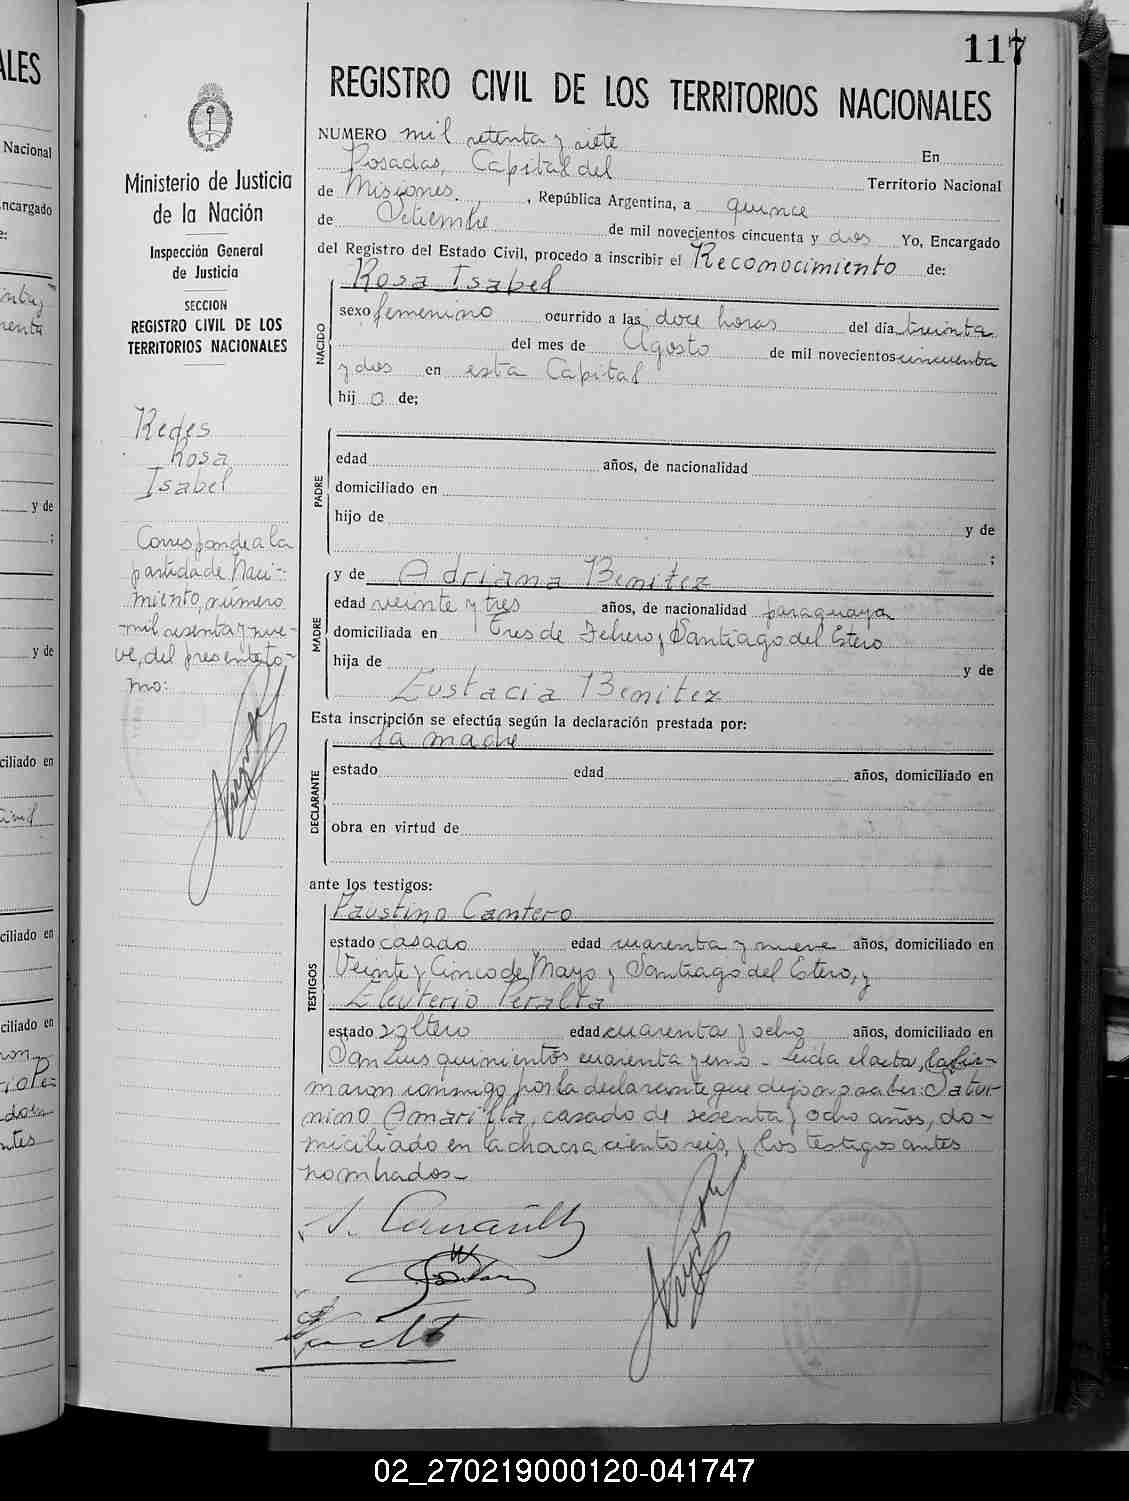 117
REGISTRO CIVIL DE LOS TERRITORIOS NACIONALES
NUMERO mil setenta y siete En
Posadas, Capital del Territorio Nacional
de Misiones. , República Argentina, a quince
de Setiembre de mil novecientos cincuenta y dos Yo, Encargado
del Registro del Estado Civil, procedo a inscribir el Reconocimiento de:
Rosa Isabel
NACIDO
sexo femenino ocurrido a las doce horas del día treinta
del mes de Agosto de mil novecientos cincuenta
y dos en esta Capital
hij a de;
PADRE
edad años, de nacionalidad
domiciliado en
hijo de y de
;
MADRE
y de Adriana Benitez
edad veinte y tres años, de nacionalidad paraguaya
domiciliada en Tres de Febrero y Santiago del Estero
hija de y de
Eustacia Benitez
Esta inscripción se efectúa según la declaración prestada por:
la madre
DECLARANTE
estado edad años, domiciliado en
obra en virtud de
ante los testigos:
TESTIGOS
Faustino Cantero
estado casado edad cuarenta y nueve años, domiciliado en
Veinte y Cinco de Mayo y Santiago del Estero, y
Eleuterio Peralta
estado soltero edad cuarenta y ocho años, domiciliado en
San Luis quinientos cuarenta y uno - Leida el acta, la fir-
maron conmigo, por la declarante, que dijo no saber: Satur-
nino Amarilla, casado de sesenta y ocho años, do-
miciliado en la chacra ciento seis, y los testigos antes
nombrados-
Ministerio de Justicia
de la Nación
Inspección General
de Justicia
SECCION
REGISTRO CIVIL DE LOS
TERRITORIOS NACIONALES
Redes
Rosa
Isabel
Corresponde a la
partida de Naci-
miento, número
mil sesenta y nue-
ve, del presente to-
mo:
ALES
Nacional
ncargado
y de
;
y de
ciliado en
ciliado en
ciliado en
02_270219000120-041747